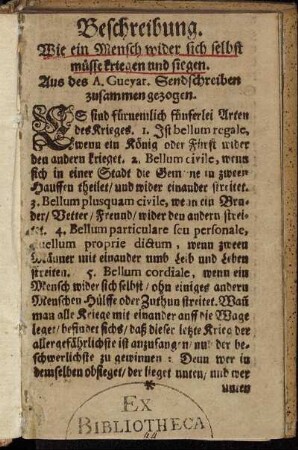 Beschreibung.
Wie ein Mensch wider sich selbst
müsse kriegen und siegen.
Aus des A. Guevar. Sendschreiben
zusammen gezogen.
ES sind fürnemlich fünferlei Arten
des Krieges. 1. Ist bellum regale,
wenn ein König oder Fürst wider
den andern krieget. 2. Bellum civile, wenn
sich in einer Stadt die Gemeine in zween
Hauffen theilet/ und wider einander streitet.
3. Bellum plusquam civile, wenn ein Bru-
der/ Vetter/ Freund/ wider den andern strei-
tet. 4. Bellum particulare seu personale,
duellum proprie dictum, wenn zween
Männer mit einander umb Leib und Leben
streiten. 5. Bellum cordiale, wenn ein
Mensch wider sich selbst/ ohn einiges andern
Menschen Hülffe oder Zuthun streitet. Wañ
man alle Kriege mit einander auff die Wage
leget/ befindet sichs/ daß dieser letzte Krieg der
allergefährlichste ist anzufangen/ und der be-
schwerlichste zu gewinnen: Denn wer in
demselben obsieget/ der lieget unten/ und wer
unten
EX
BIBLIOTHECA